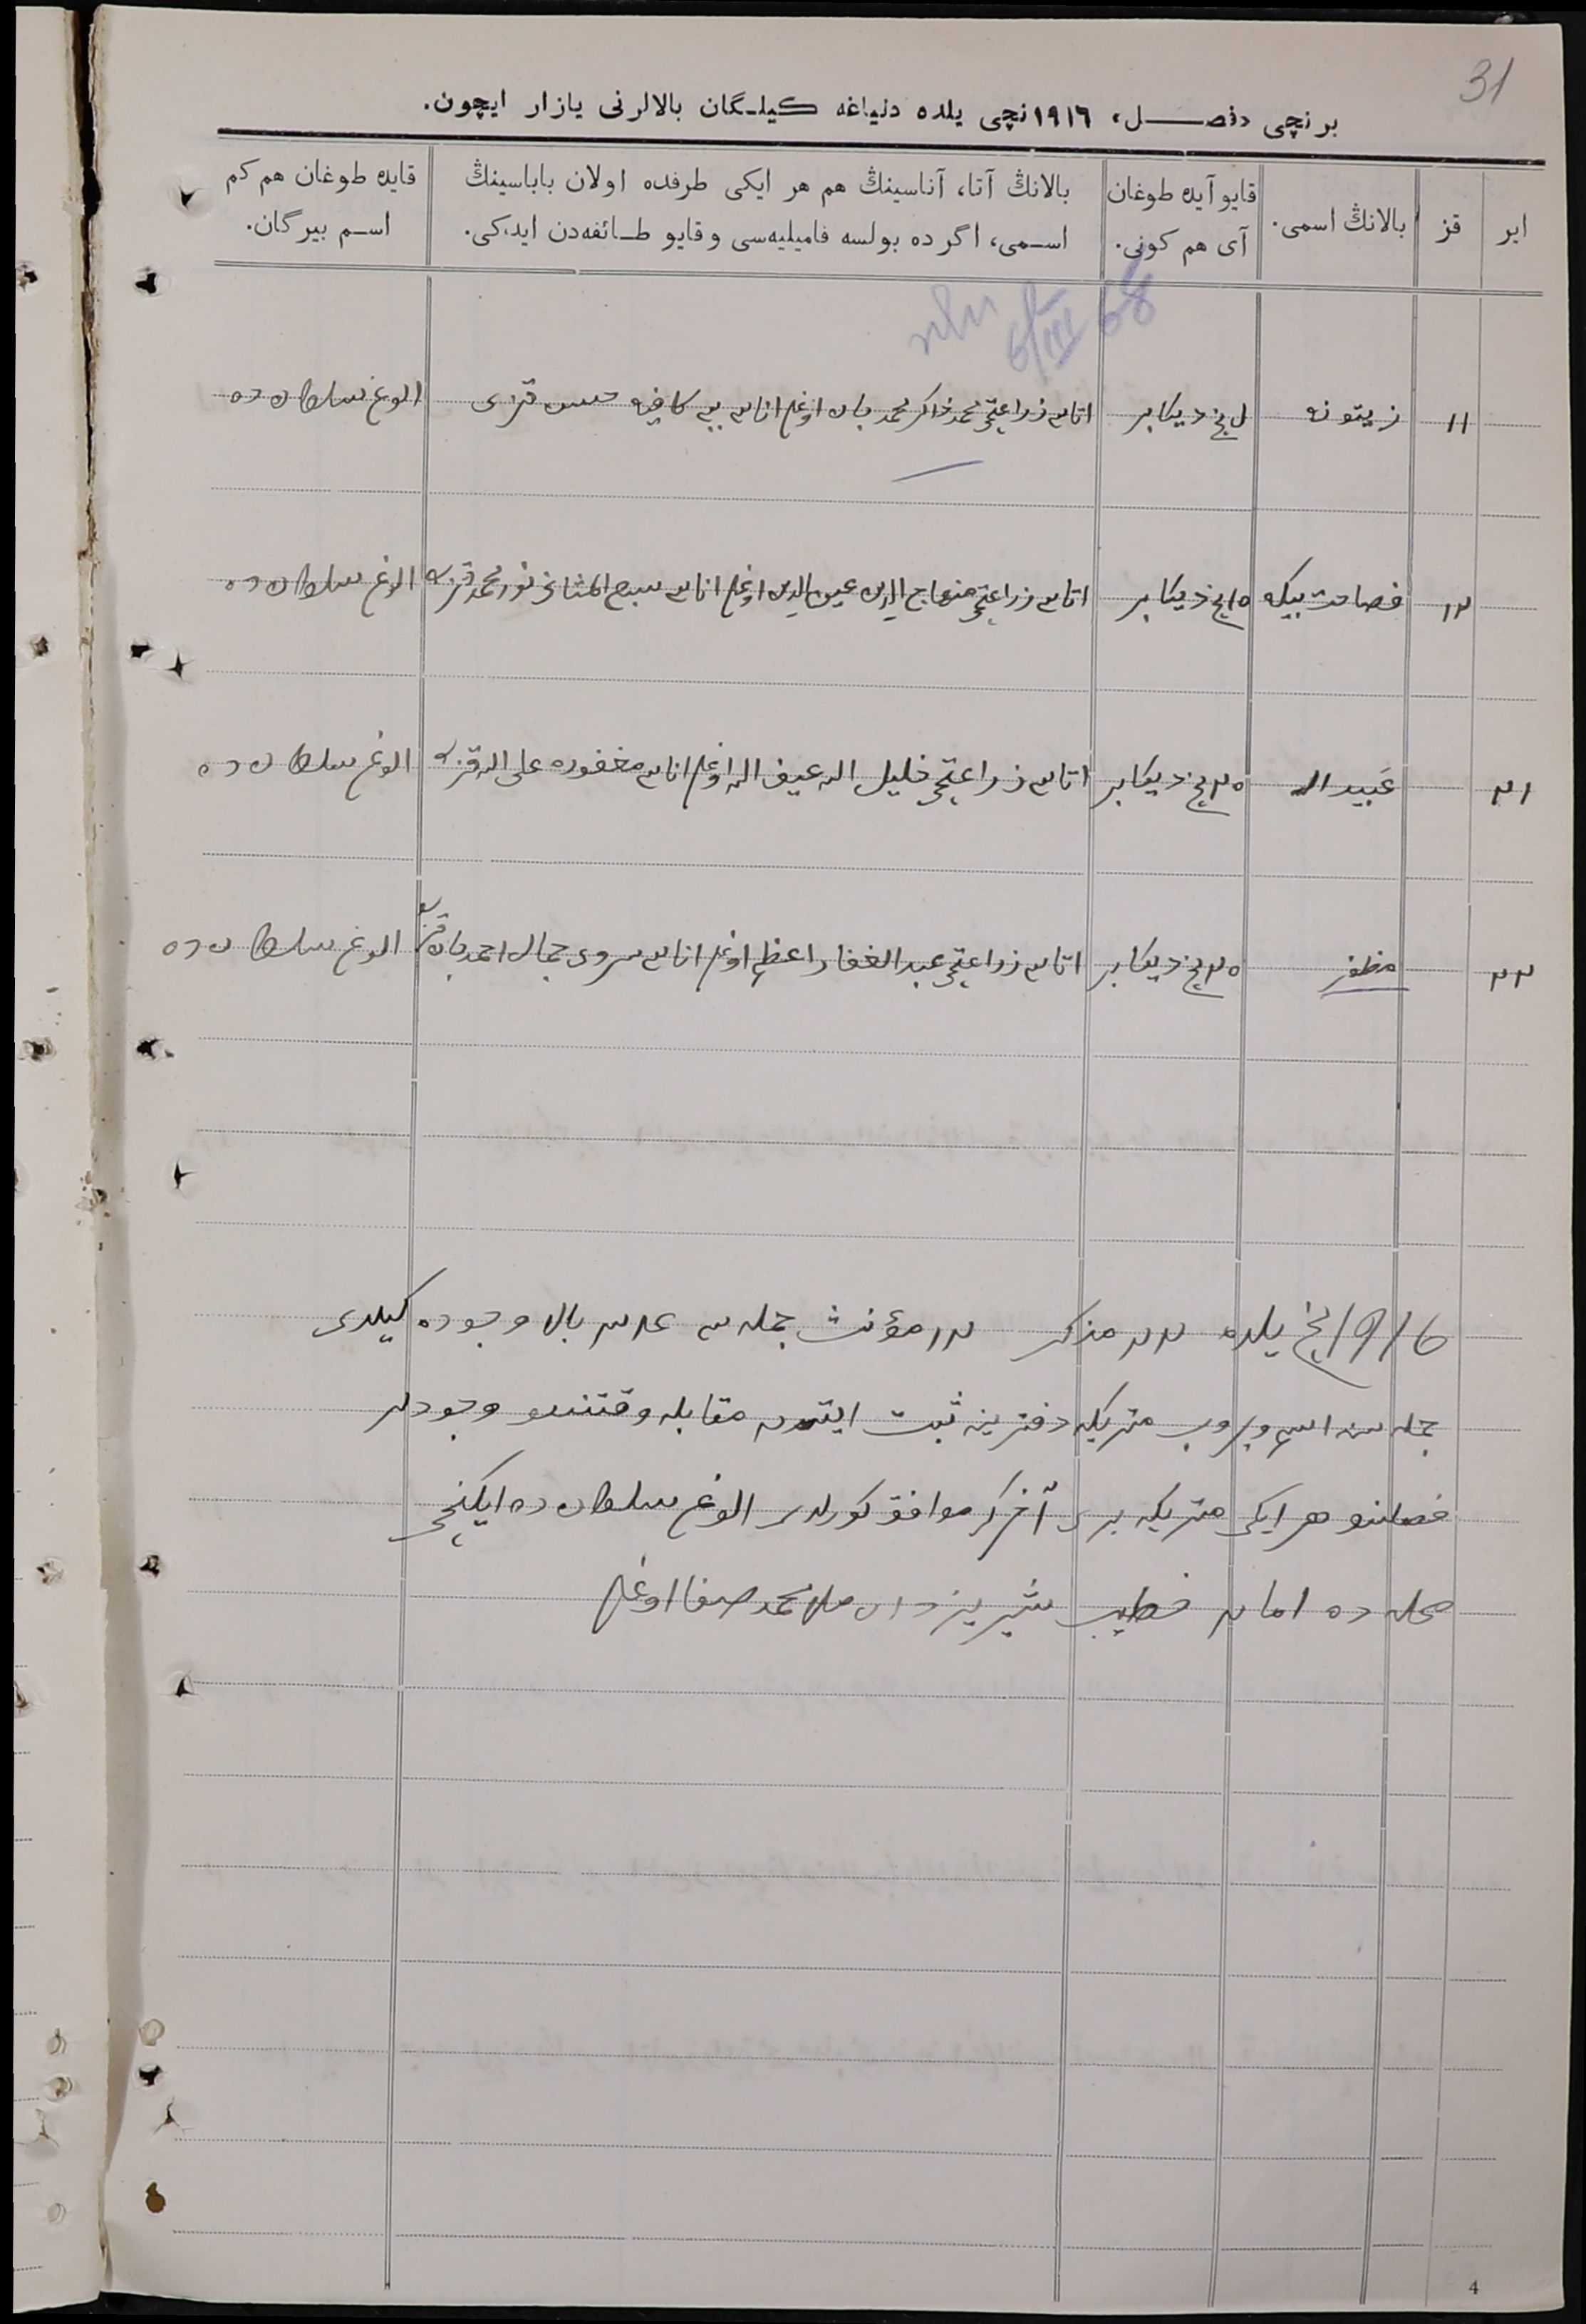 31
برنچی «فصل» ١٩١٦نچی یلده دنیاغه کیلگان بالالرنی یازار ایچون.
ایر
قز
بالانڭ اسمی.
قایو آیده طوغان
آی هم کونی.
بالانڭ آتا، آناسینڭ هم هر ایکی طرفده اولان باباسینڭ
اسمی، اگر ده بولسه فامیلیه‌سی وقایو طائفه‌دن ایدیکی.
قایده طوغان هم کم
اسم بیرگان.
6/III 68
١١ زیتونه نچی دیکابر اتاسی زراعتچی محمد ذاکر محمد جان اوغلی اناسی بی بی کافیه حسن قزی الوغ سلطان ده
١٢ فصاحت بیکه ١٥نچی دیکابر اتاسی زراعتچی منهاج الدین عین الدین اوغلی اناسی سبع المثانی نور محمد قزی الوغ سلطان ده
٢١ عبید الله ٢٥نچی دیکابر اتاسی زراعتچی خلیل الله الله اوغلی اناسی مغفوره علی الله قزی الوغ سلطان ده
٢٢ مظفر ٢٥نچی دیکابر اتاسی زراعتچی عبد الغفار اعظم اوغلی اناسی سروی جمال احمد جان قزی الوغ سلطان ده
1916نچی یلده ٢٢ مذکر ١٢ مؤنث جمله‌سی ٣٤ بالا وجوده کیلدی
جمله‌سنه اسم ویروب متریکه دفترینه ثبت ایتدم مقابله وقتنده
هر ایکی متریکه بری آخرگه موافق کورلدی الوغ سلطان ده ایکنچی
محله ده امام خطیب ملا محمد صفا اوغلی
4